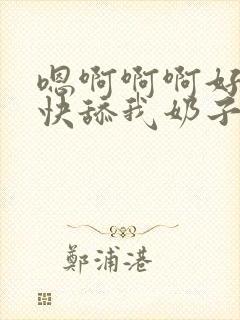 嗯啊啊啊好
快舔我奶子
鄭浦港